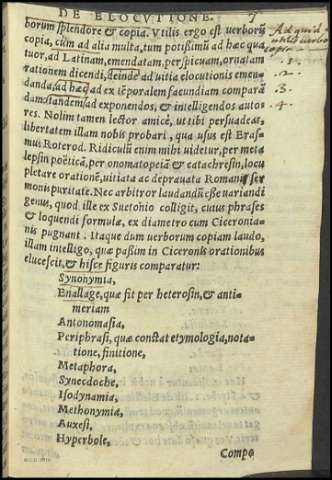 DE ELOCVTIONE. 7
borum splendore & copia. Vtilis ergo est uerborũ
copia, cùm ad alia multa, tum potißimũ ad hæc qua
tuor, ad Latinam, emendatam, perspicuam, ornatam
rationem dicendi, deinde ad uitia elocutionis emen
danda, ad hæc ad ex tẽporalem faecundiam comparã
dam, tandem ad exponendos, & intelligendos auto
res. Nolim tamen lector amicè, ut tibi persuadeas,
libertatem illam nobis probari, qua usus est Eras
mus Roterod. Ridiculũ enim mihi uidetur, per meta
lepsin poëticã, per onomatopeiã & catachresin, locu
pletare orationẽ, uitiata ac deprauata Romani ser
monis puritate. Nec arbitror laudandũ eße uariandi
genus, quod ille ex Suetonio colligit, cuius phrases
& loquendi formulæ, ex diametro cum Ciceronia-
nis pugnant. Itaque dum uerborum copiam laudo,
illam intelligo, quæ paßim in Ciceronis orationibus
elucescit, & hisce figuris comparatur:
Synonymia,
Enallage, quæ fit per heterosin, & anti-
meriam
Antonomasia,
Periphrasi, quæ constat etymologia, nota-
tione, finitione,
Metaphora,
Synecdoche,
Isodynamia,
Methonymia,
Auxesi,
Hyperbole,
Compa
Ad quid
utilis verborũ
copia
.1.
.2.
.3.
.4.